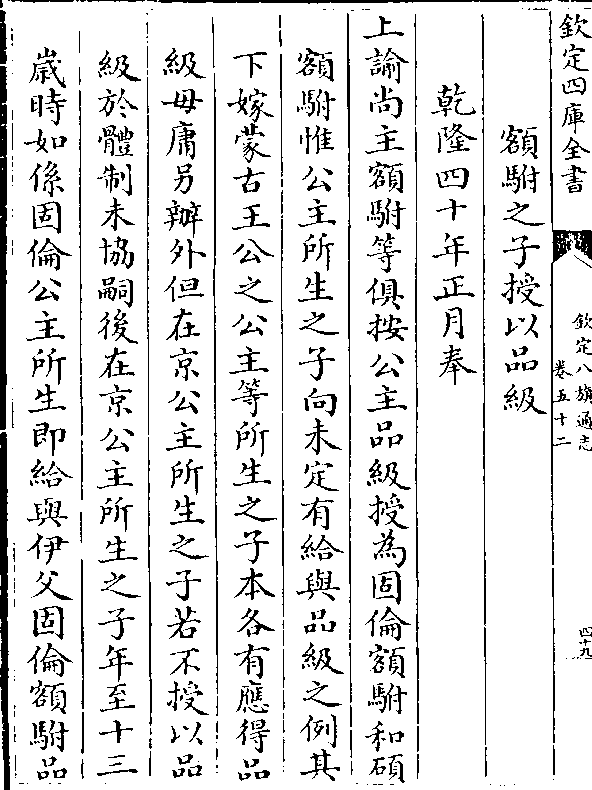 欽定四庫全書
欽定八旗通志
卷五十二
四十九
額駙之子授以品級
乾隆四十年正月奉
上諭尚主額駙等俱按公主品級授為固倫額駙和碩
額駙惟公主所生之子向未定有給與品級之例其
下嫁蒙古王公之公主等所生之子本各有應得品
級毋庸另辦外但在京公主所生之子若不授以品
級於體制未協嗣後在京公主所生之子年至十三
歲時如係固倫公主所生即給與伊父固倫額駙品